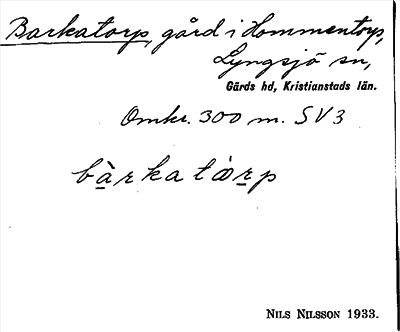 Barkatorp, gård i Hommentorp,
Lyngsjö sn,
Gärds hd, Kristianstads län.
Omkr. 300 m. SV 3
bà̱rkatȯṟp
NILS NILSSON 1933.